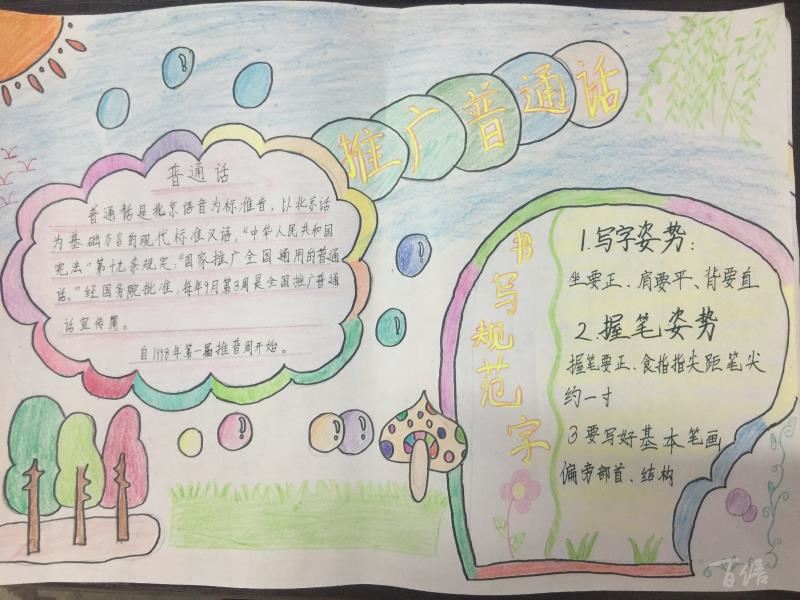 推广普通话
普通话
普通话是北京语音为标准音，以北京话
为基础方言的现代标准汉语。“中华人民共和国
宪法”第十九条规定：“国家推广全国通用的普通
话。”经国务院批准，每年9月第3周是全国推广普通
话宣传周。
自1998年第一届推普周开始。
书写规范字
1.写字姿势：
坐要正、肩要平、背要直
2.握笔姿势
握笔要正、食指指尖距笔尖
约一寸
3要写好基本笔画
偏旁部首、结构